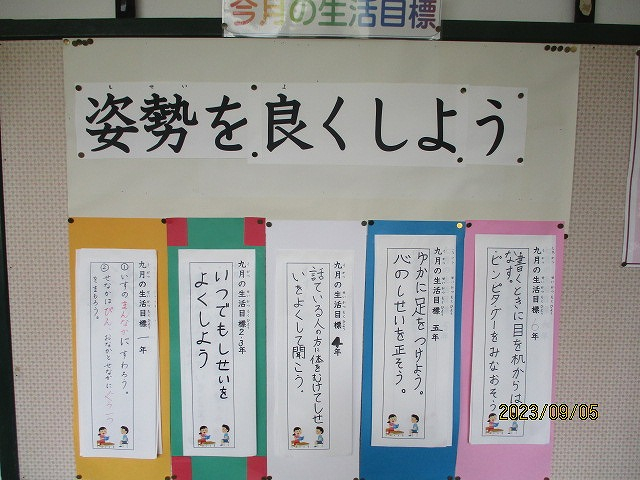 今月の生活目標
姿勢を良くしよう
九月の生活目標 一年
①いすのまんなかにすわろう。
②せなかはぴん おなかとせなかに
をまもろう。
九月の生活目標2・3年
いつでもしせいを
よくしよう
九月の生活目標 4年
話ている人の方に体をむけてしせ
いをよくして聞こう。
九月の生活目標 五年
ゆかに足をつけよう。
心のしせいを正そう。
九月の生活目標 年
書くときに目を机からは
なす。
ピンピタグーをみなおそう
2023/09/05